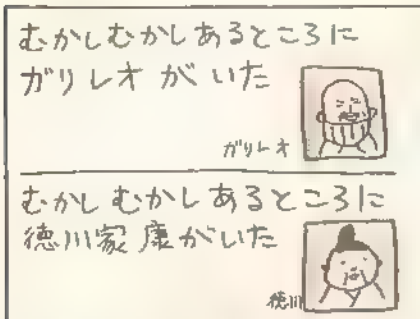 むかしむかしあるところに
ガリレオがいた
ガリレオ
むかしむかしあるところに
徳川家康がいた
徳川